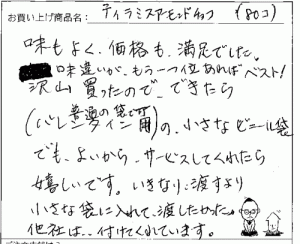 お買い上げ商品名: ティラミスアーモンドチョコ (80コ)
味もよく、価格も、満足でした。
味違いが、もう一つ位あればベスト!
沢山買ったので、できたら
普通の袋で可
(バレンタイン用)の、小さなビニール袋
でも、よいから、サービスしてくれたら
嬉しいです。いきなり渡すより
小さな袋に入れて、渡したかった。
他社は、付けてくれています。